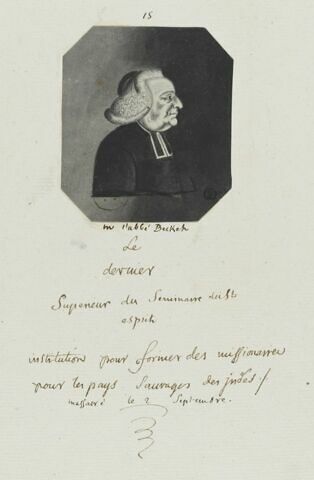 15
m l'abbé Becket
Le
dernier
Superieur du Seminaire du St
esprit
institution pour former des missionaires
pour les pays Sauvages des jndes ./.
massacré le 2 Septembre.